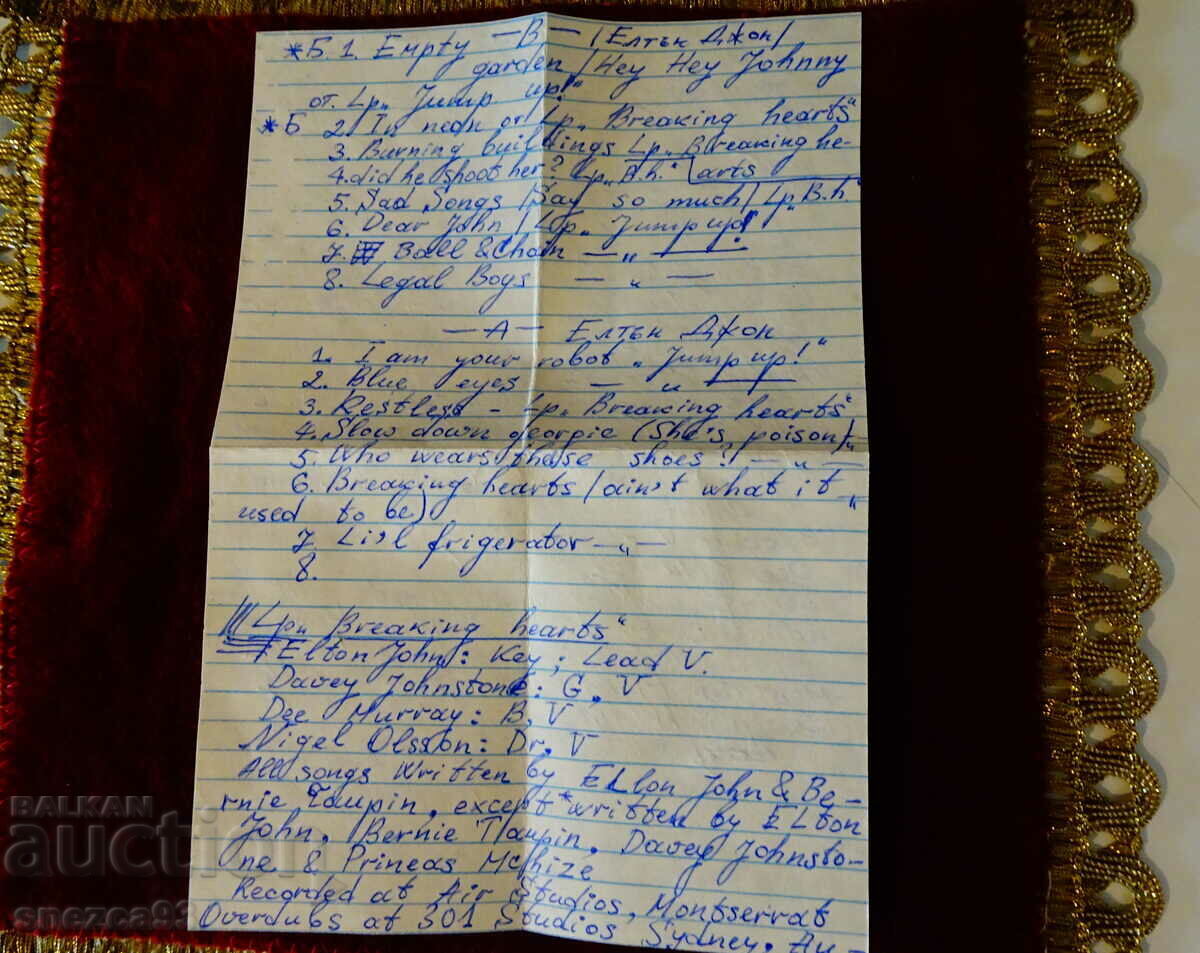 *Б. 1. Empty — В — /Елтън Джон/
garden /Hey Hey Johnny
от. Lp„ Jump up!"
*Б 2. In neon от Lp„ Breaking hearts"
3. Burning buildings Lp„ Breaking he-
4. did he shoot her? Lp„ B.h." arts
5. Sad Songs /Say so much/ Lp„ B.h."
6. Dear John / Lp„ Jump up!"
7. Ball & Chain — „ —
8. Legal Boys — „ —
— А — Елтън Джон
1. I am your robot „ Jump up!"
2. Blue eyes — „ —
3. Restless - Lp„ Breaking hearts"
4. Slow down georgie (She's poison) - „ -
5. Who wears these shoes? — „ —
6. Breaking hearts /ain't what it „
used to be)
7. Li'l frigerator — „ —
8.
Lp„ Breaking hearts"
Elton John: Key; Lead V.
Davey Johnstone: G, V
Dee Murray: B, V
Nigel Olsson: Dr, V
All songs Written by ELton John & Be-
rnie Taupin, except *written by ELton
John, Bernie Taupin, Davey Johnsto-
ne & Prineas McPhize
Recorded at Air Studios, Montserrat
Overdubs at 301 Studios Sydney, Au-
BALKAN
auction
snezca93